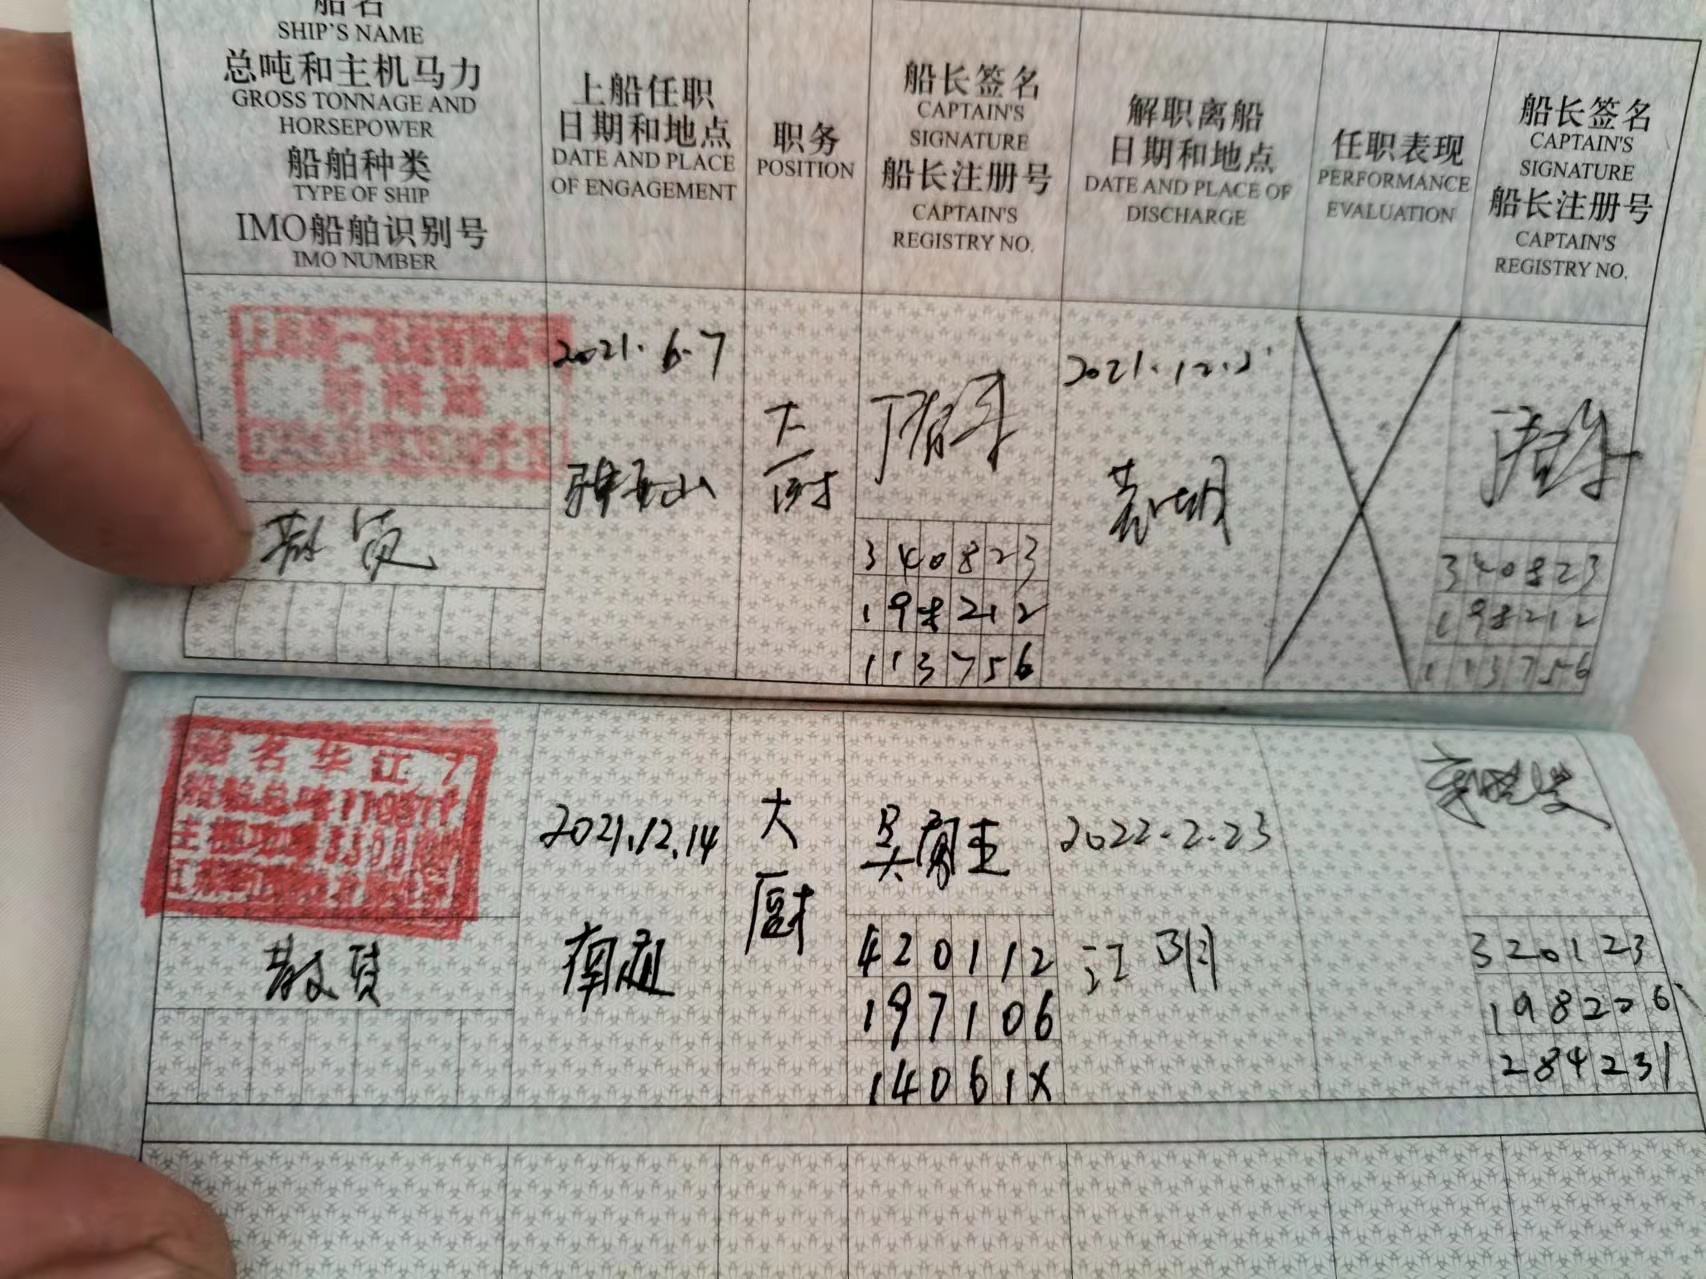 船名
SHIP'S NAME
总吨和主机马力
GROSS TONNAGE AND
HORSEPOWER
船舶种类
TYPE OF SHIP
IMO船舶识别号
IMO NUMBER
上船任职
日期和地点
DATE AND PLACE
OF ENGAGEMENT
职务
POSITION
船长签名
CAPTAIN'S
SIGNATURE
船长注册号
CAPTAIN'S
REGISTRY NO.
解职离船
日期和地点
DATE AND PLACE OF
DISCHARGE
任职表现
PERFORMANCE
EVALUATION
船长签名
CAPTAIN'S
SIGNATURE
船长注册号
CAPTAIN'S
REGISTRY NO.
散货
2021.6.7
大
厨
340823
198212
113756
2021.12.
340823
198212
113756
船名华江7
船舶总吨
主机功率
散货
2021.12.14
大
厨
420112
197106
14061X
2022.2.23
江阴
320123
198226
284231